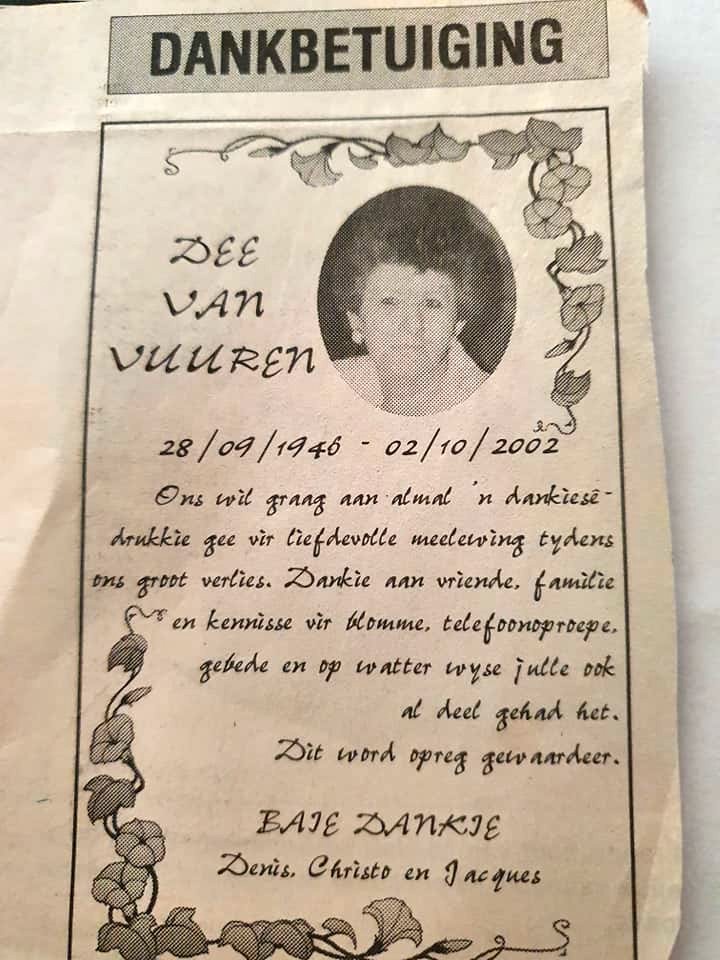 DANKBETUIGING
DEE
VAN
VUUREN
28/09/1946 - 02/10/2002
Ons wil graag aan almal 'n dankiesê-
drukkie gee vir liefdevolle meelewing tydens
ons groot verlies. Dankie aan vriende, familie
en kennisse vir blomme, telefoonoproepe,
gebede en op watter wyse julle ook
al deel gehad het.
Dit word opreg gewaardeer.
BAIE DANKIE
Denis, Christo en Jacques